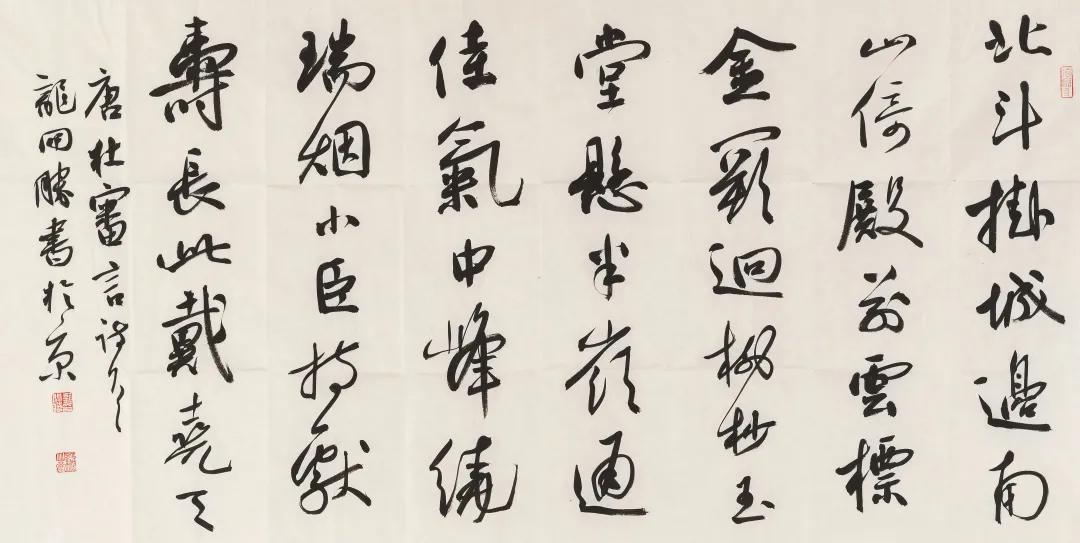 北斗掛城邊南
山倚殿前雲標
金闕逈樹杪玉
堂懸半嶺通
佳氣中峰繞
瑞烟小臣持獻
壽長此戴堯天
唐杜審言詩一首
龍開勝書於京